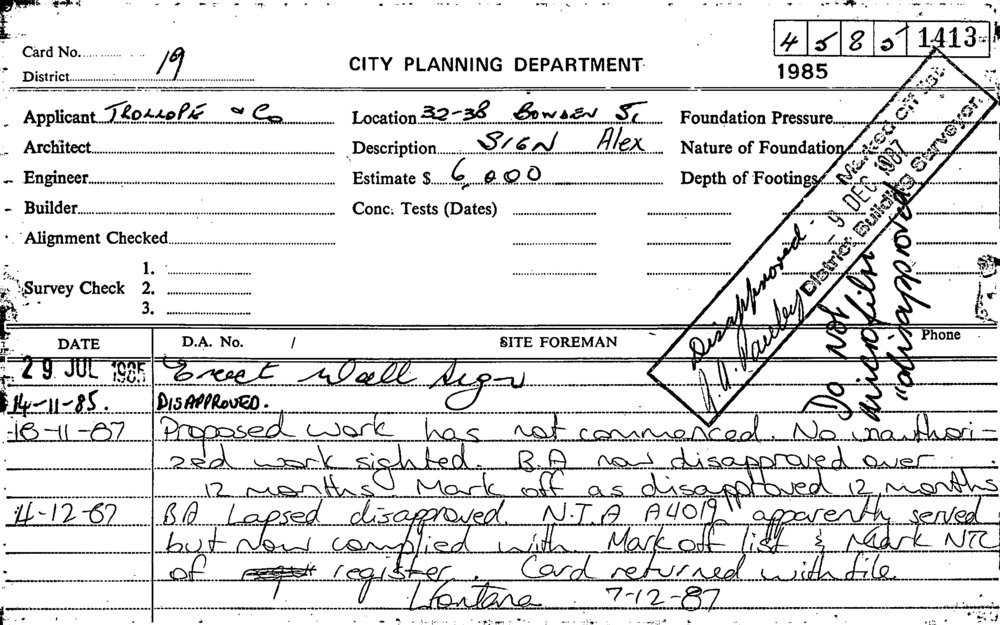 4 5 8 5 1413
Card No.
19
CITY PLANNING DEPARTMENT
1985
District
Applicant TROLLOPE & Co
Location 32-38 BOWDEN St
Foundation Pressure
Architect
Description SIGN Alex
Nature of Foundation
Engineer
Estimate $ 6,000
Depth of Footings
Builder
Conc. Tests (Dates)
Alignment Checked
1.
Survey Check 2.
3.
Marked off list
Disapproved - 9 DEC 1987
District Building Surveyor.
Do not
microfilm
"disapproved"
DATE
D.A. No. /
SITE FOREMAN
Phone
29 JUL 1985 Erect Wall Sign
14-11-85. DISAPPROVED.
18-11-87 Proposed work has not commenced. No unauthori-
zed work sighted. B.A now disapproved over
12 months Mark off as disapproved 12 months
4-12-87 BA Lapsed disapproved. N.T.A A4019 apparently served
but now complied with. Mark off list & Mark NTC
of register. Card returned with file
7-12-87